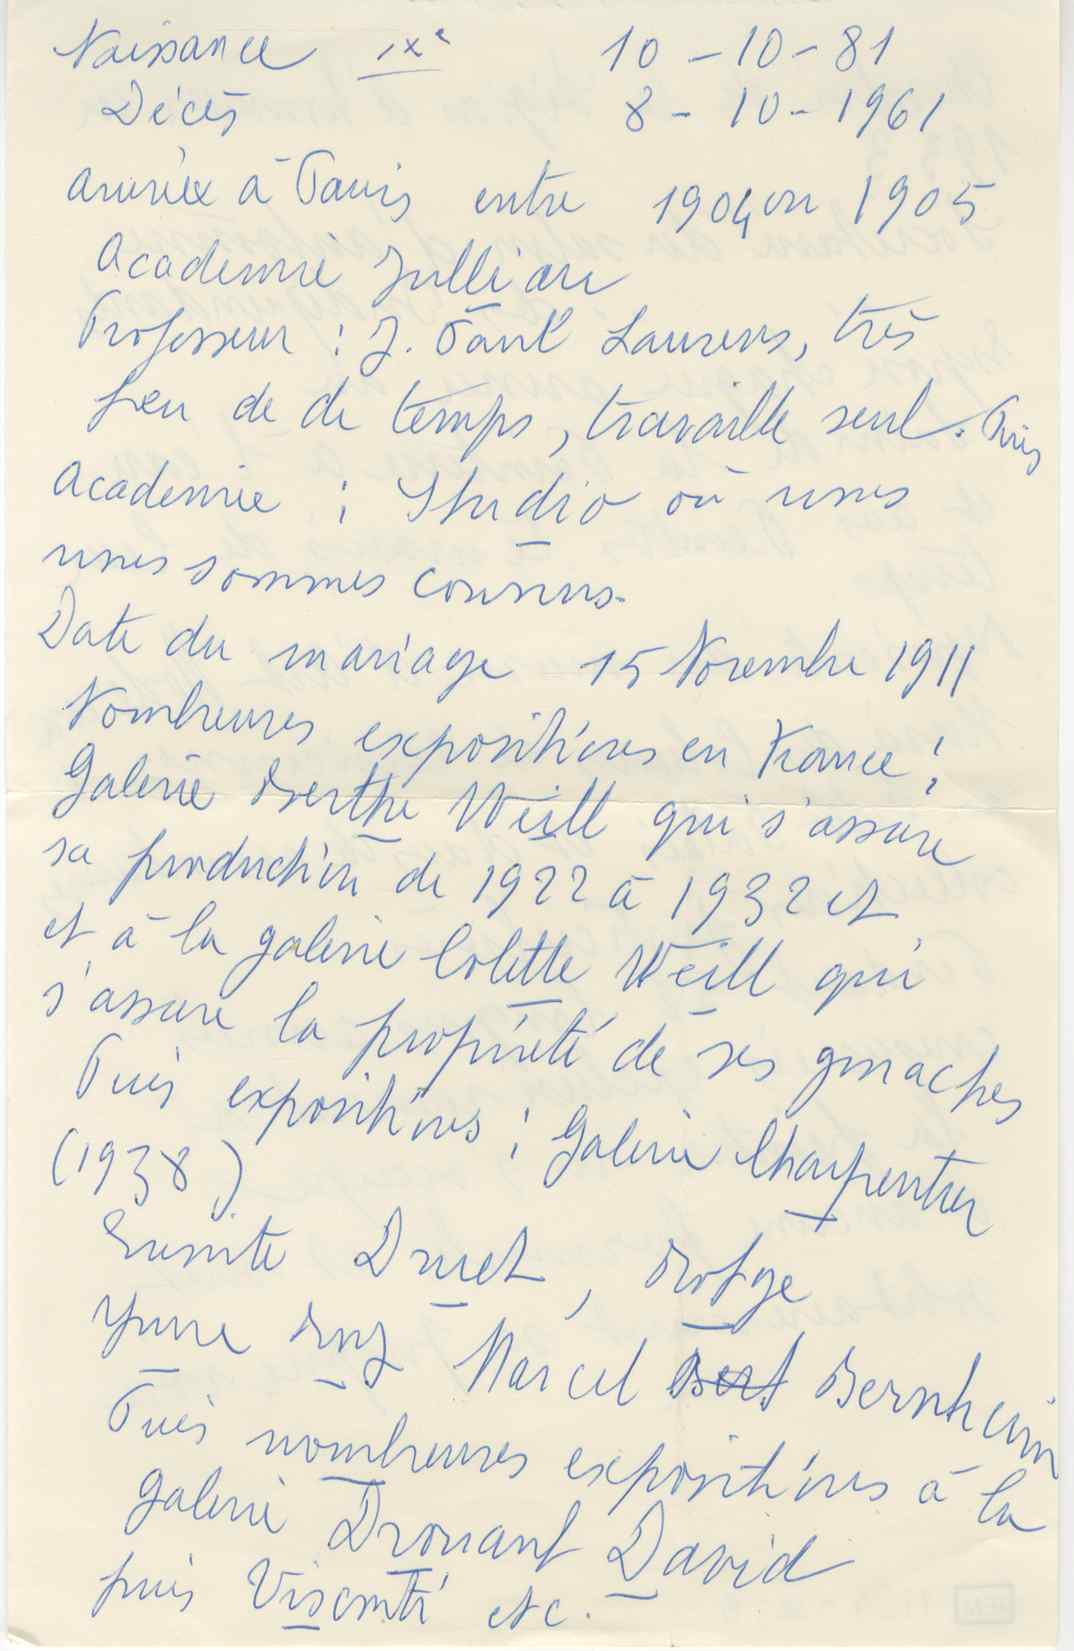 Naissance IXe 10-10-81
Décès 8-10-1961
arrivée à Paris entre 1904 ou 1905
Academie Jullian
Professeur : J. Paul Laurens, très
peu de de temps, travaille seul. Puis
Academie : Studio où nous
nous sommes connus.
Date du mariage 15 Novembre 1911
Nombreuses expositions en France :
Galerie Berthe Weill qui s'assure
sa production de 1922 à 1932 et
et à la galerie Colette Weill qui
s'assure la propriété de ses gouaches
Puis expositions : Galerie Charpentier
(1938)
Ensuite Druet, Rotge
Yvonne Marcel Bernheim
Puis nombreuses expositions à la
galerie Drouant David
puis Visconti etc.